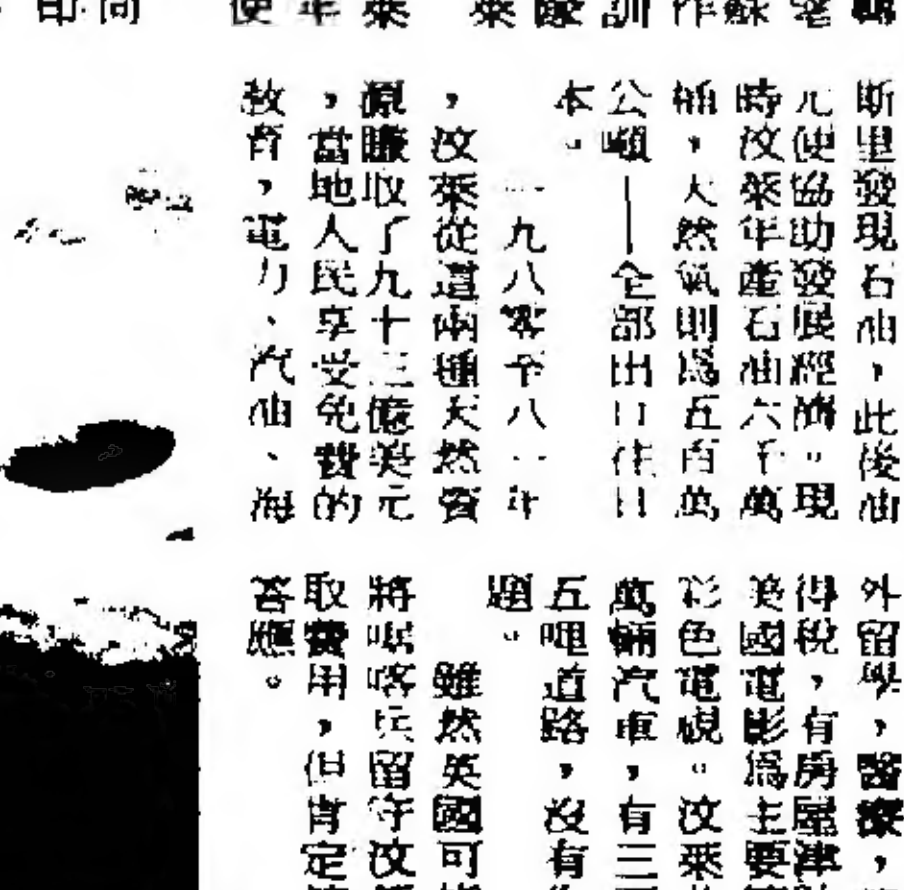 斯里發現石油，此後油
元便協助發展經濟。現
時汶萊年產石油六千萬
桶，天然氣則爲五百萬
公噸——全部出口往日
本。
一九八零至八一年
，汶萊從這兩種天然資
源賺取了九十三億美元
，當地人民享受免費的
教育，電力、汽油、海
外留學，醫療，
得稅，有房屋津
美國電影爲主要
彩色電視。汶萊
萬輛汽車，有三
五哩道路，沒有
題。
雖然英國可
將啹喀兵留守汶
取費用，但肯定
答應。